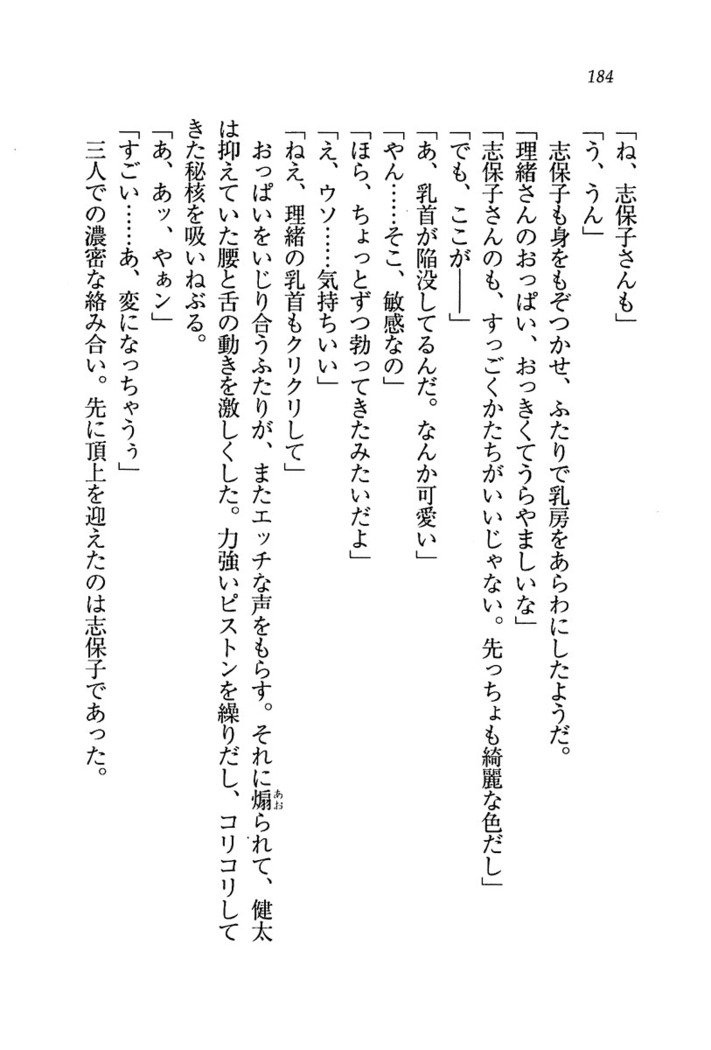 184
「ね、志保子さんも」
「う、うん」
　志保子も身をもぞつかせ、ふたりで乳房をあらわにしたようだ。
「理緒さんのおっぱい、おっきくてうらやましいな」
「志保子さんのも、すっごくかたちがいいじゃない。先っちょも綺麗な色だし」
「でも、ここが――」
「あ、乳首が陥没してるんだ。なんか可愛い」
「やん……そこ、敏感なの」
「ほら、ちょっとずつ勃ってきたみたいだよ」
「え、ウソ……気持ちいい」
「ねえ、理緒の乳首もクリクリして」
　おっぱいをいじり合うふたりが、またエッチな声をもらす。それに煽られて、健太
あお
は抑えていた腰と舌の動きを激しくした。力強いピストンを繰りだし、コリコリして
きた秘核を吸いねぶる。
「あ、あッ、やぁン」
「すごい……あ、変になっちゃうぅ」
　三人での濃密な絡み合い。先に頂上を迎えたのは志保子であった。